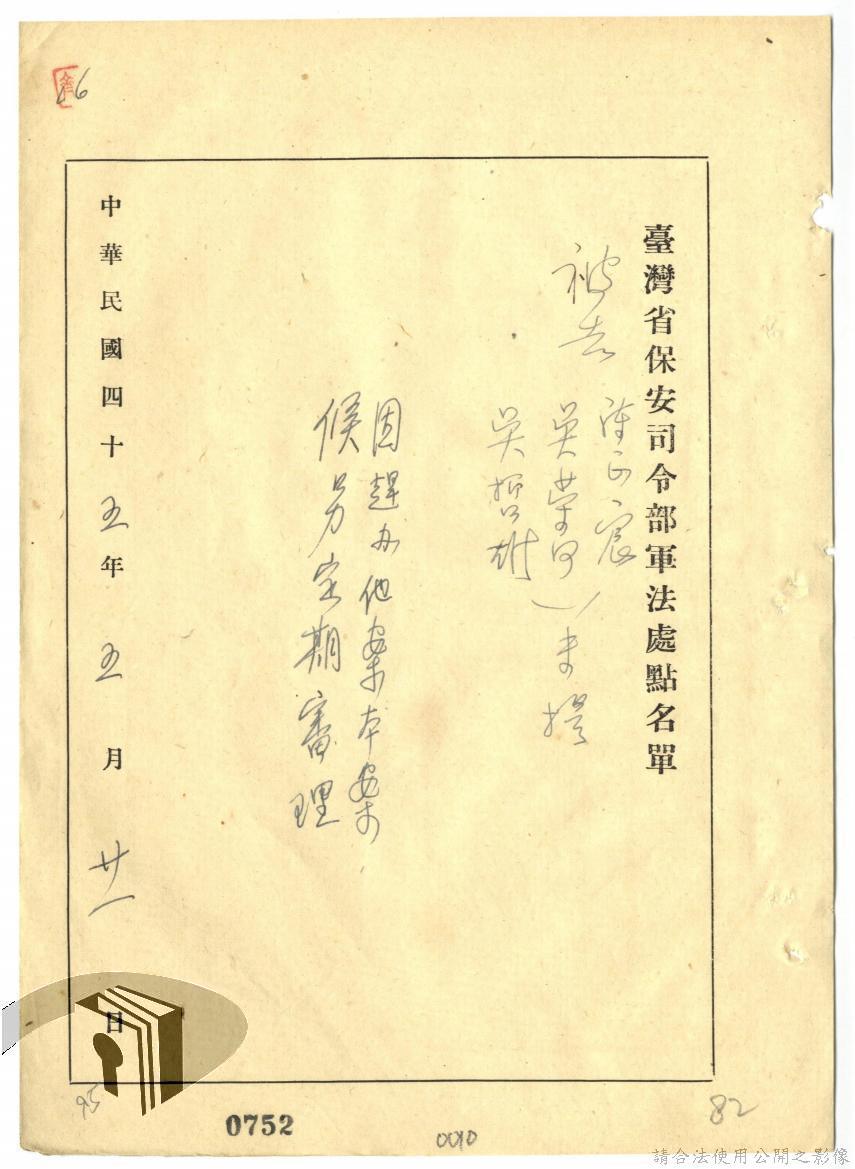 臺灣省保安司令部軍法處點名單
被告
陳正宸
吳哲雄
未提
因趕办他案本案
候另定期審理
中華民國四十五年五月廿一日
46
95
0752
0010
82
請合法使用公開之影像